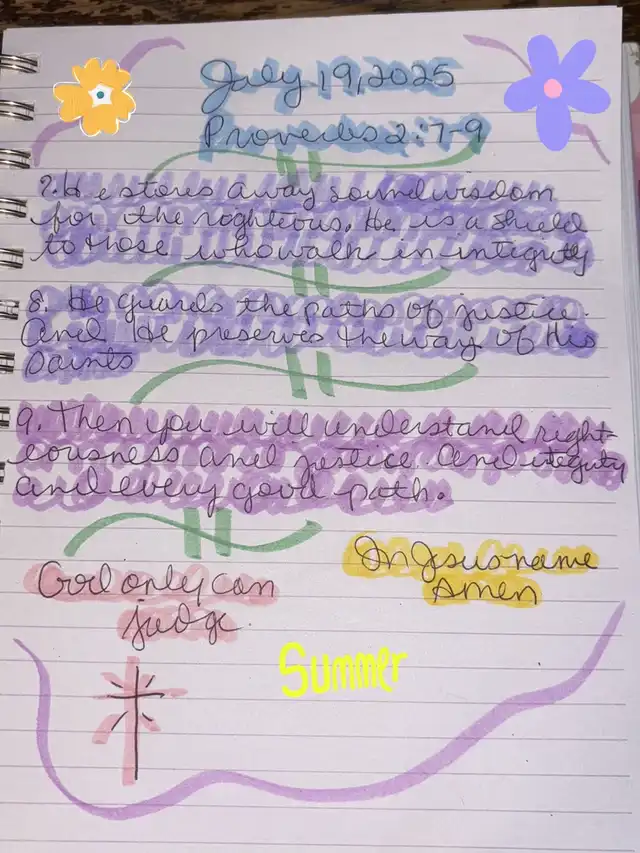 July 19, 2025
Proverbs 2:7-9
7. He stores away sound wisdom
for the righteous. He is a shield
to those who walk in integrity
8. He guards the paths of justice.
And He preserves the way of His
Saints
9. Then you will understand right-
eousness and justice. And itegrity
and every good path.
God only can
judge.
In Jesus name
Amen
Summer